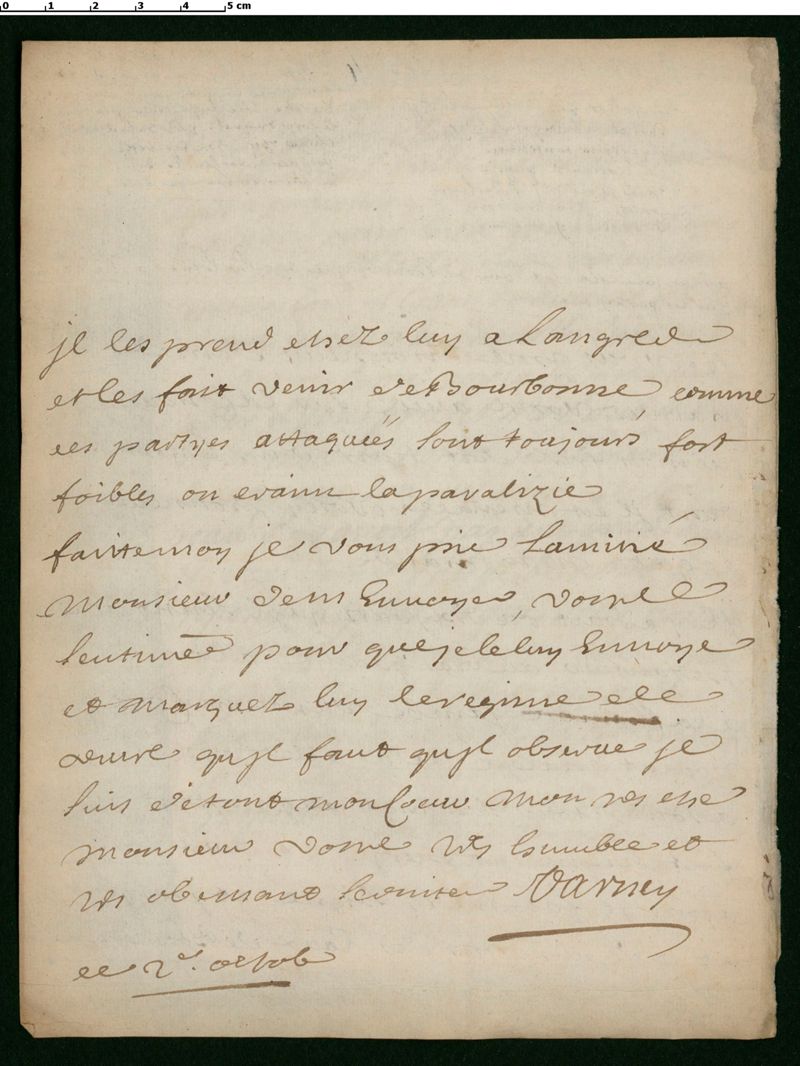 0 1 2 3 4 5 cm
je les prend chez luy a Langred
et les fait venir de Bourbonne comme
ces partyes attaquéés sont toujours fort
foibles on craint la paralizie
faittemoy je vous prie Lamitié
Monsieur dem Envoyer votre
sentimet pour queje le luy Envoye
et marquez luy leregime de
vivre qu jl faut qu jl observe je
suis detout monCoeur Mon tres cher
monsieur votre tres humble et
tres obeissant serviter Varney
ce 2e. octob